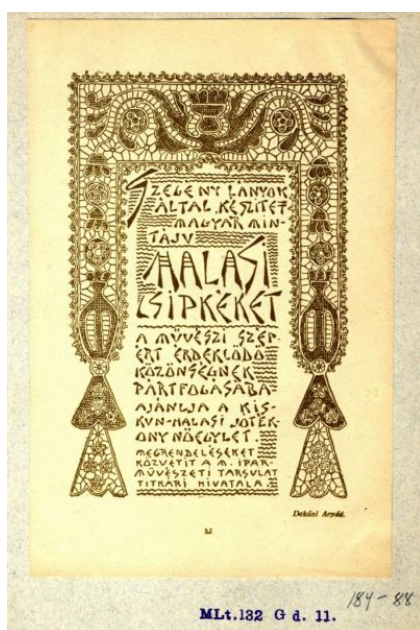 SZEGENY LANYOK
ÁLTAL KÉSZITET
MAGYAR MIN-
TÁJU
HALASI
CSIPKÉKET
A MŰVÉSZI SZÉP
ÉRT ÉRDEKLŐDŐ
KÖZÖNSÉGNEK
PÁRTFOGÁSÁBA
AJÁNLJA A KIS-
KUN-HALASI JÓTÉK-
ONY NŐEGYLET.
MEGRENDELÉSEKET
KÖZVETIT A M. IPAR-
MŰVÉSZETI TÁRSULAT
TITKÁRI HIVATALA.
Dékáni Árpád.
XI
184-88
MLt.132 G d. 11.